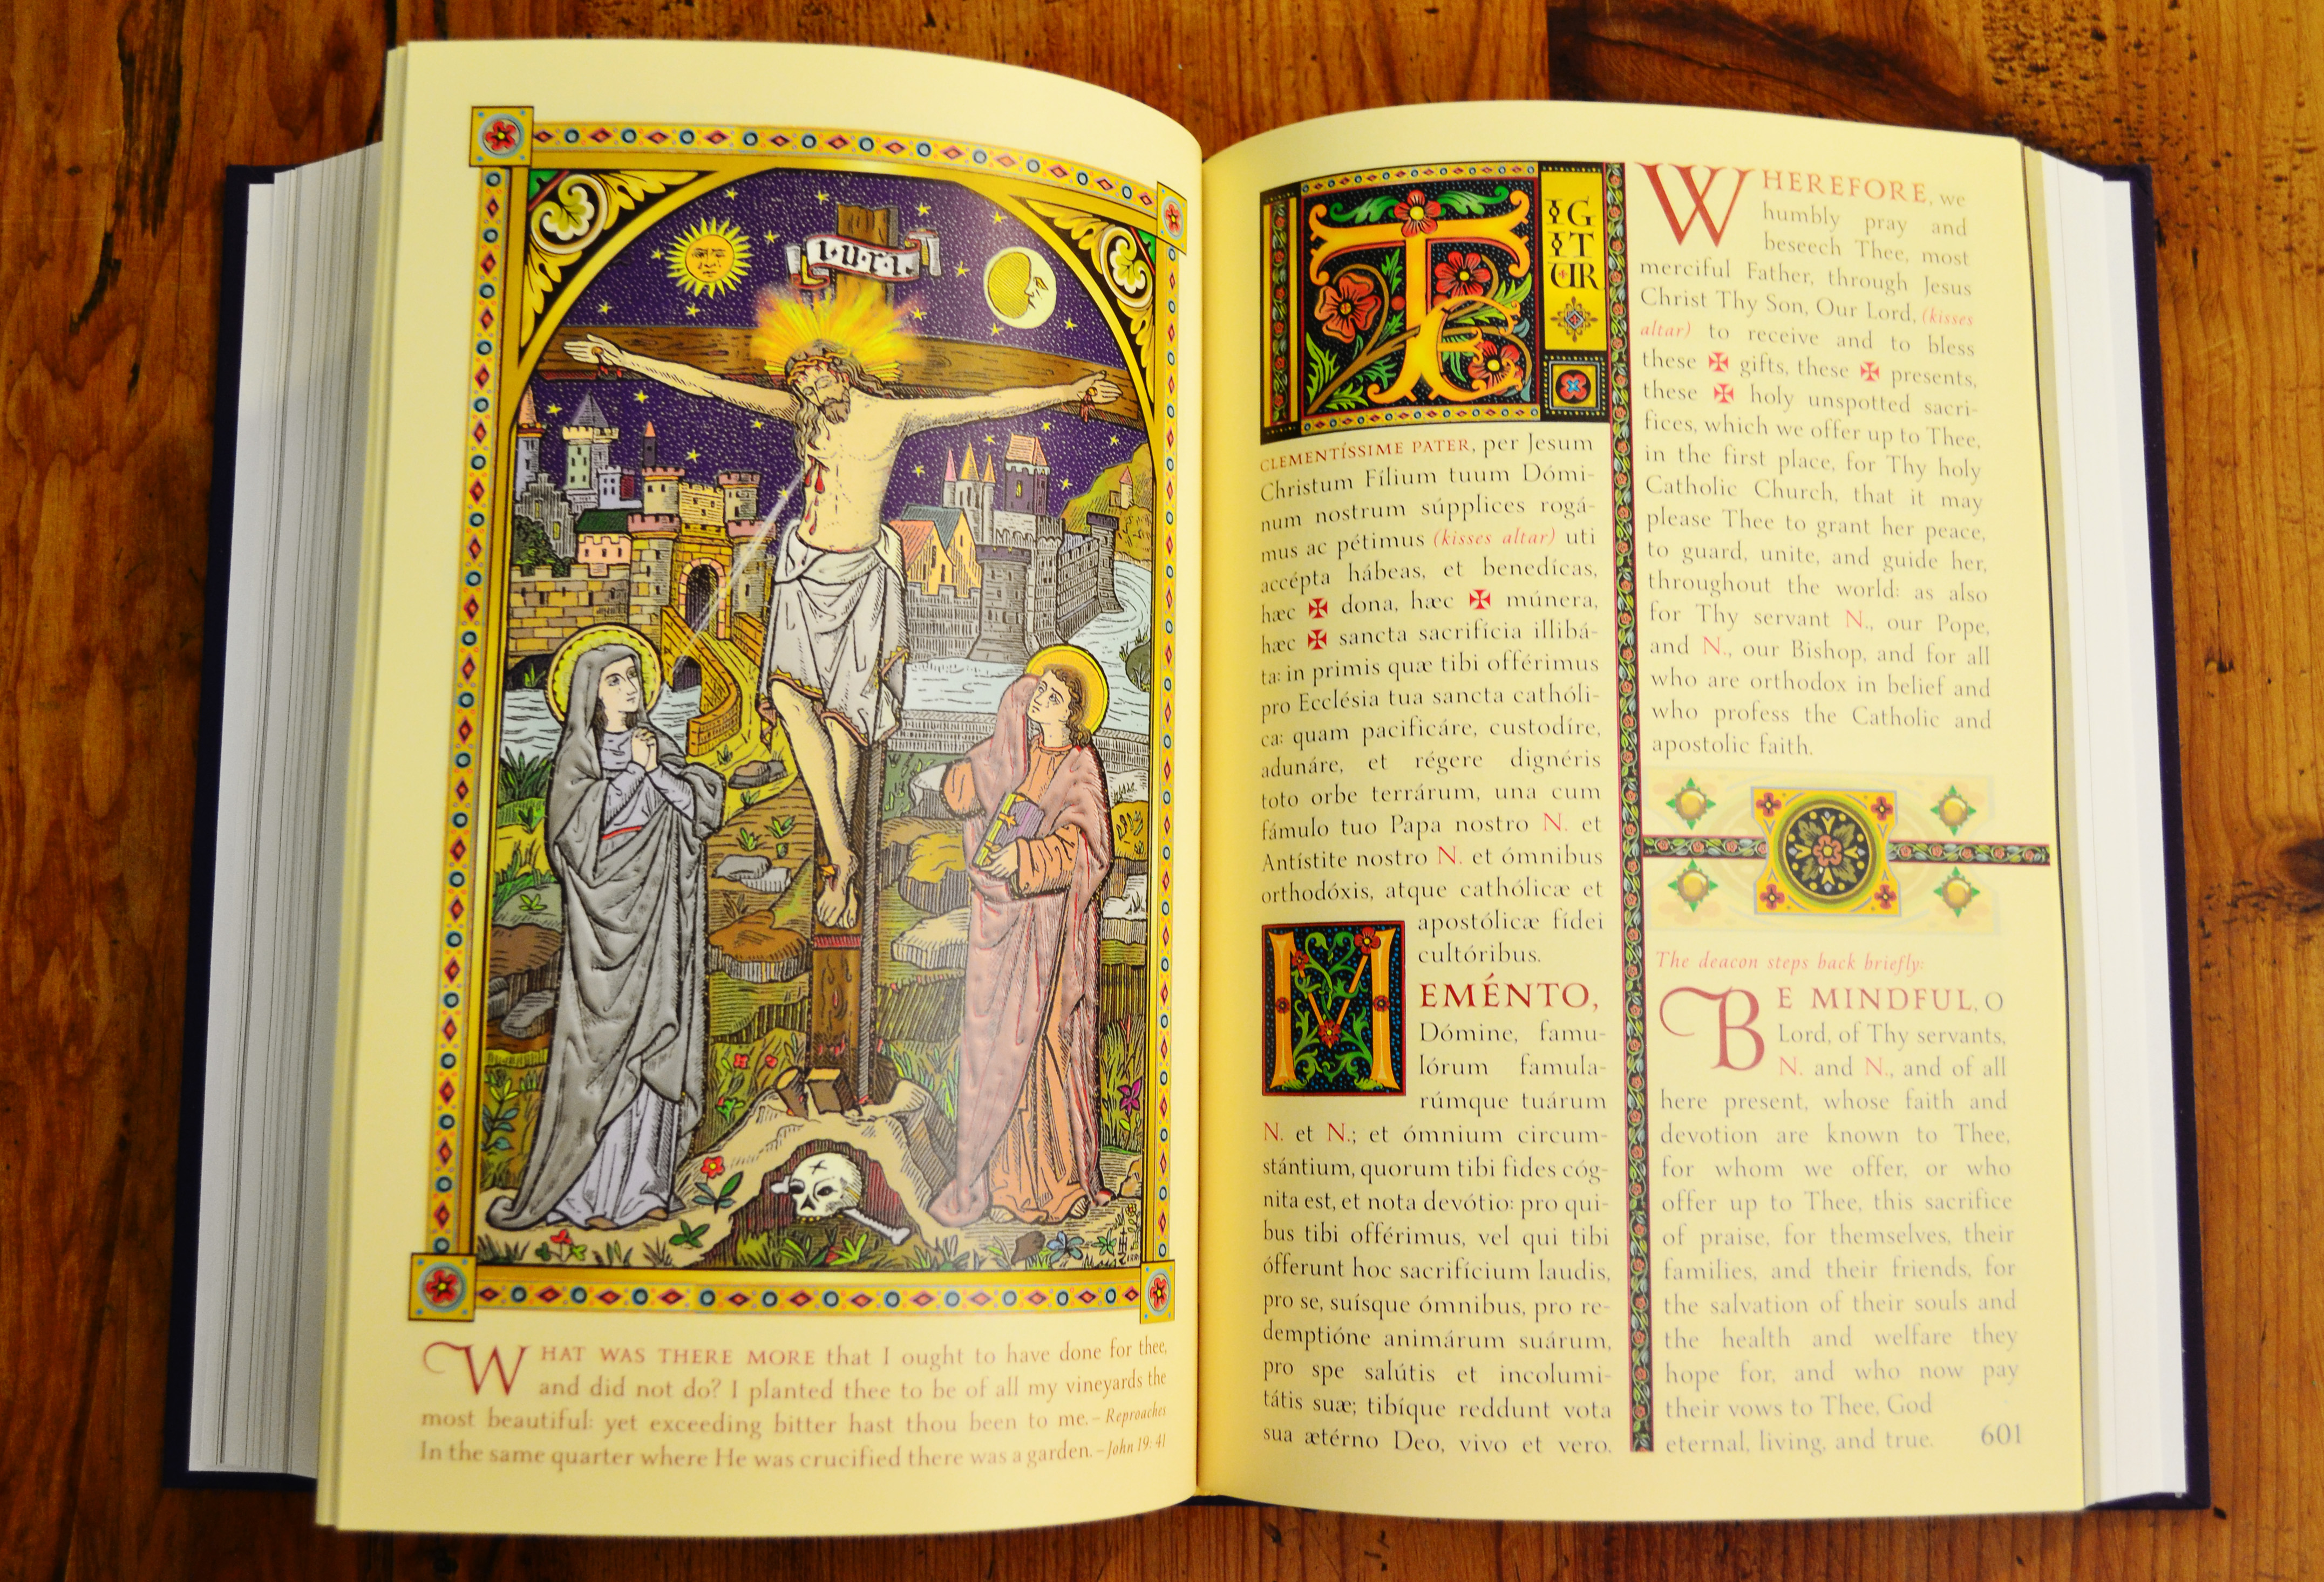 I·N·R·I·
WHAT WAS THERE MORE that I ought to have done for thee,
and did not do? I planted thee to be of all my vineyards the
most beautiful: yet exceeding bitter hast thou been to me. – Reproaches
In the same quarter where He was crucified there was a garden. – John 19:41
TE
IG
IT
UR
CLEMENTÍSSIME PATER, per Jesum
Christum Fílium tuum Dómi-
num nostrum súpplices rogá-
mus ac pétimus (kisses altar) uti
accépta hábeas, et benedícas,
hæc ✠ dona, hæc ✠ múnera,
hæc ✠ sancta sacrifícia illibá-
ta: in primis quæ tibi offérimus
pro Ecclésia tua sancta cathóli-
ca: quam pacificáre, custodíre,
adunáre, et régere dignéris
toto orbe terrárum, una cum
fámulo tuo Papa nostro N. et
Antístite nostro N. et ómnibus
orthodóxis, atque cathólicæ et
apostólicæ fídei
cultóribus.
MEMÉNTO,
Dómine, famu-
lórum famula-
rúmque tuárum
N. et N.; et ómnium circum-
stántium, quorum tibi fides cóg-
nita est, et nota devótio: pro qui-
bus tibi offérimus, vel qui tibi
ófferunt hoc sacrifícium laudis,
pro se, suísque ómnibus, pro re-
demptióne animárum suárum,
pro spe salútis et incolumi-
tátis suæ; tibíque reddunt vota
sua ætérno Deo, vivo et vero.
WHEREFORE, we
humbly pray and
beseech Thee, most
merciful Father, through Jesus
Christ Thy Son, Our Lord, (kisses
altar) to receive and to bless
these ✠ gifts, these ✠ presents,
these ✠ holy unspotted sacri-
fices, which we offer up to Thee,
in the first place, for Thy holy
Catholic Church, that it may
please Thee to grant her peace,
to guard, unite, and guide her,
throughout the world: as also
for Thy servant N., our Pope,
and N., our Bishop, and for all
who are orthodox in belief and
who profess the Catholic and
apostolic faith.
The deacon steps back briefly:
BE MINDFUL, O
Lord, of Thy servants,
N. and N., and of all
here present, whose faith and
devotion are known to Thee,
for whom we offer, or who
offer up to Thee, this sacrifice
of praise, for themselves, their
families, and their friends, for
the salvation of their souls and
the health and welfare they
hope for, and who now pay
their vows to Thee, God
eternal, living, and true.
601